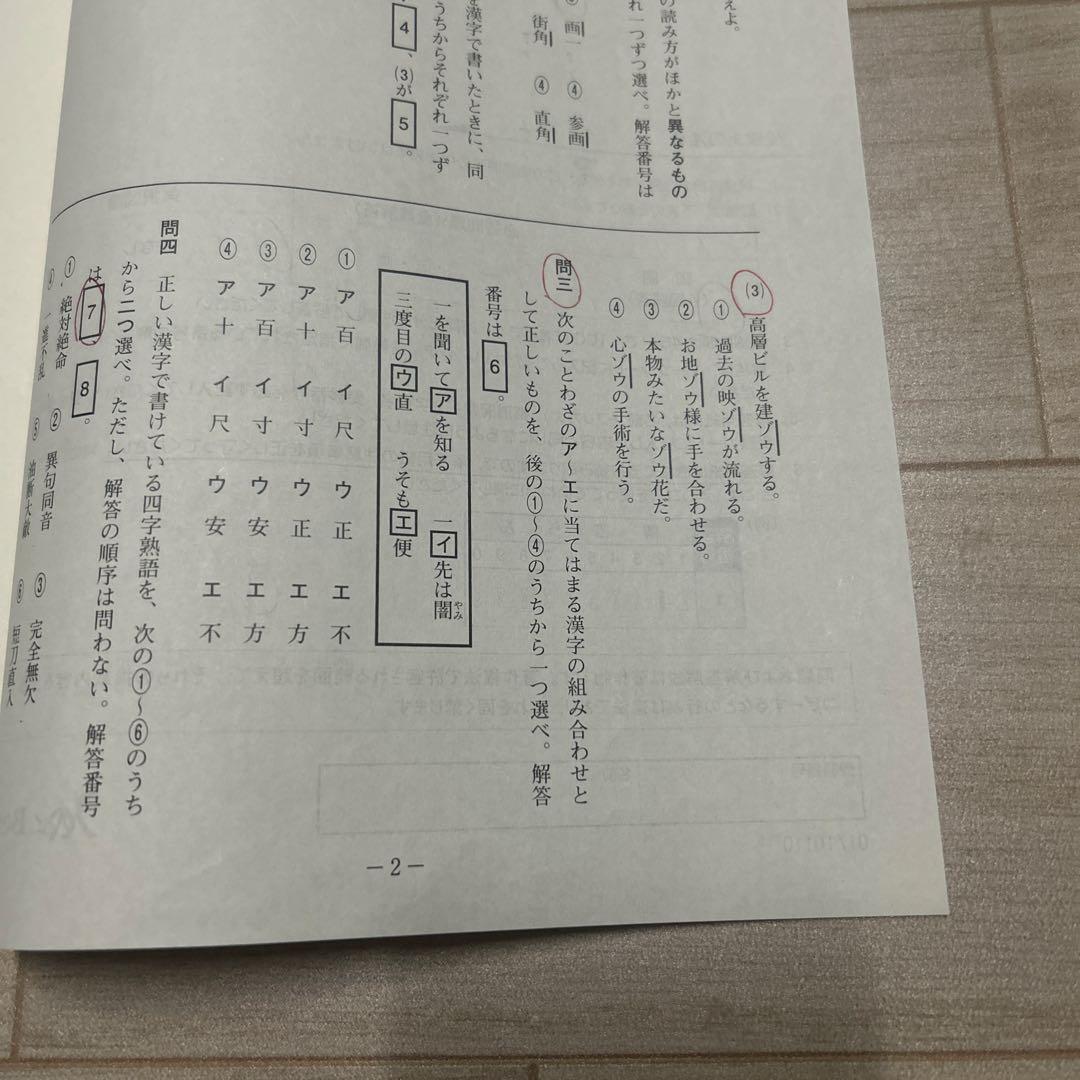 えよ。
の読み方がほかと異なるもの
れ一つずつ選べ。解答番号は
画一 ④ 参画
街角 ④ 直角
を漢字で書いたときに、同
うちからそれぞれ一つず
4、(3)が5。
(3) 高層ビルを建ゾウする。
① 過去の映ゾウが流れる。
② お地ゾウ様に手を合わせる。
③ 本物みたいなゾウ花だ。
④ 心ゾウの手術を行う。
問三 次のことわざのア～エに当てはまる漢字の組み合わせと
して正しいものを、後の①～④のうちから一つ選べ。解答
番号は6。
一を聞いてアを知る 一イ先は闇やみ
三度目のウ直 うそもエ便
① ア百 イ尺 ウ正 エ不
② ア十 イ寸 ウ正 エ方
③ ア百 イ寸 ウ安 エ方
④ ア十 イ尺 ウ安 エ不
問四 正しい漢字で書けている四字熟語を、次の①～⑥のうち
から二つ選べ。ただし、解答の順序は問わない。解答番号
は7、8。
① 絶対絶命 ② 異句同音 ③ 完全無欠
⑤ 油断大敵 ⑥ 短刀直入
－2－